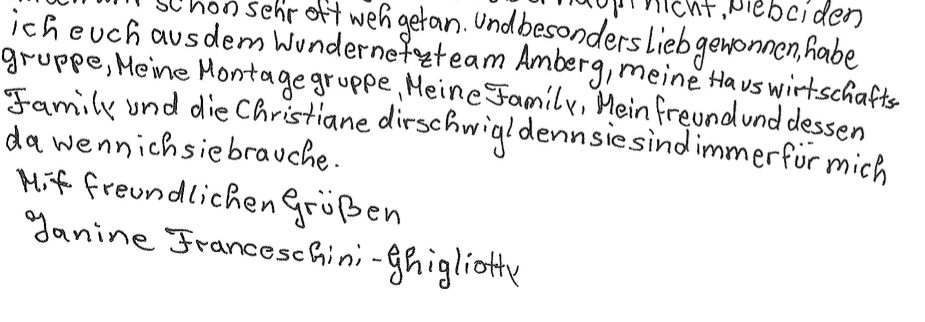 schon sehr oft weh getan. Und besonders Lieb gewonnen, habe
ich euch aus dem Wundernetzteam Amberg, meine Hauswirtschafts
gruppe, Meine Montagegruppe, Meine Family, Mein freund und dessen
Family und die Christiane dirschwigl denn sie sind immer für mich
da wenn ich sie brauche.
Mit freundlichen Grüßen
Janine Franceschini-Ghigliotty